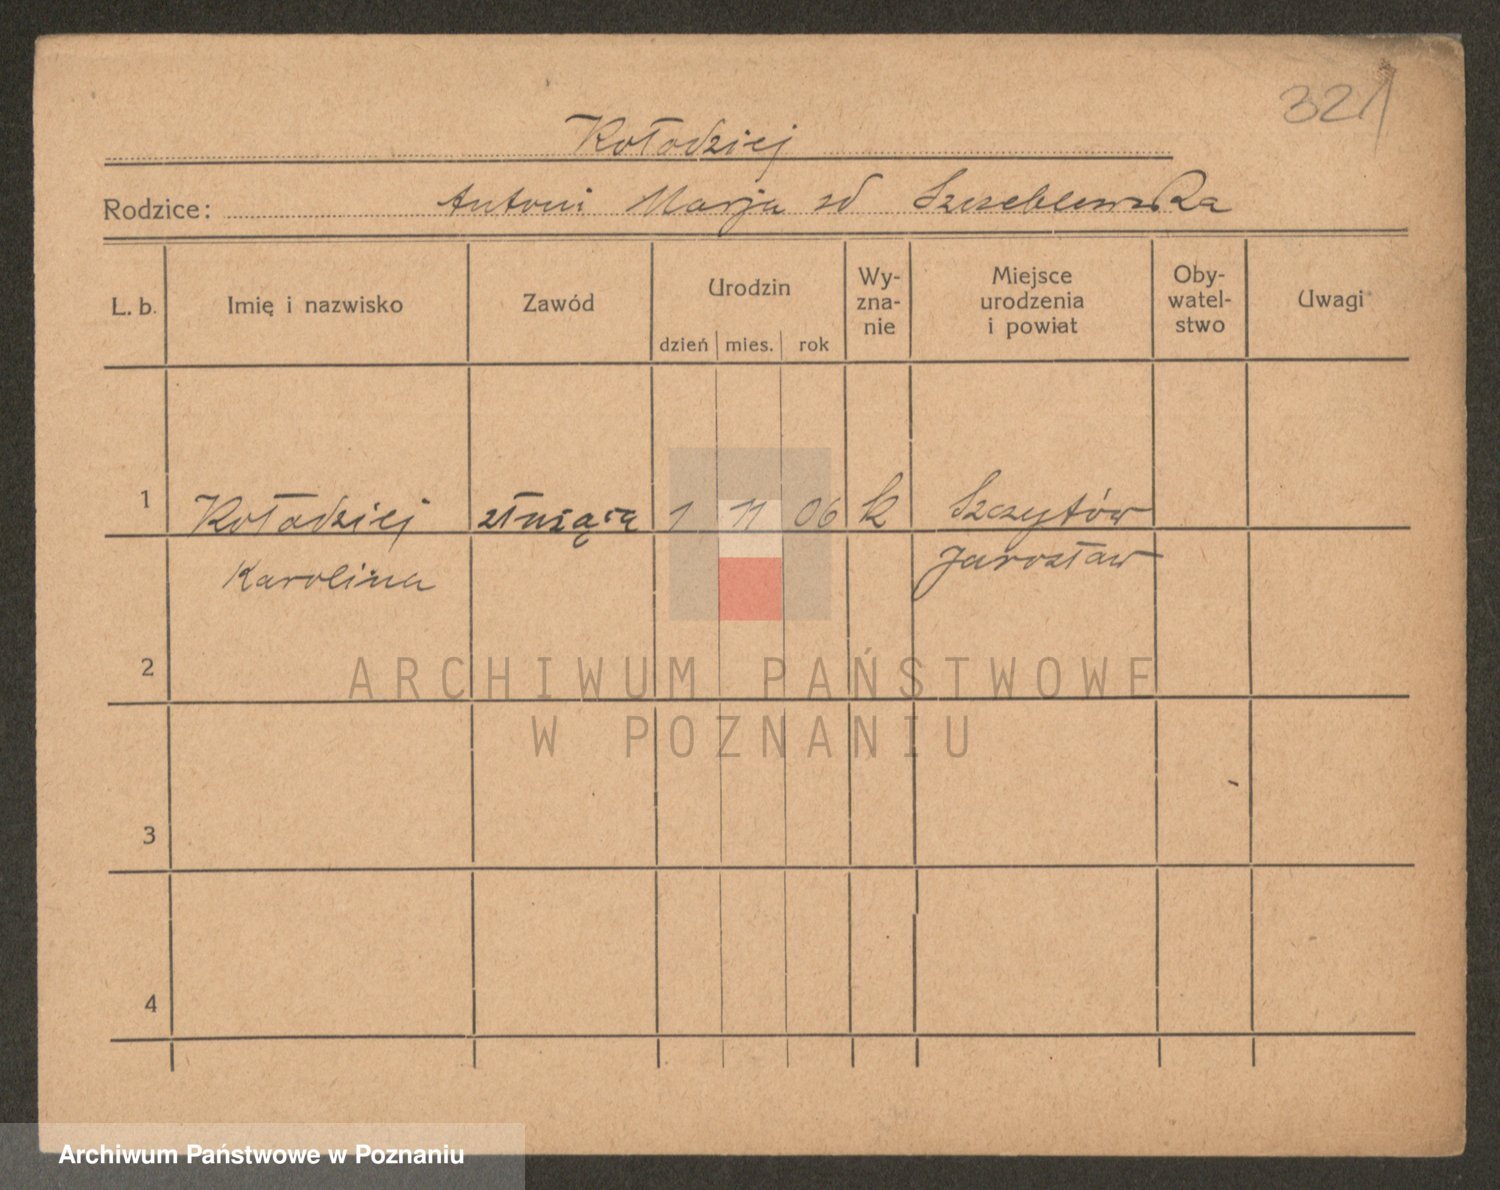 321
Kołodziej
Rodzice: Antoni Marja zd Szczeblewska
L. b. Imię i nazwisko Zawód Urodzin Wy-zna-nie Miejsce urodzenia i powiat Oby-watel-stwo Uwagi
dzień mies. rok
1 Kołodziej służąca 1 11 06 k Szczytów
Karolina Jarosław
2
ARCHIWUM PAŃSTWOWE
W POZNANIU
3
4
Archiwum Państwowe w Poznaniu